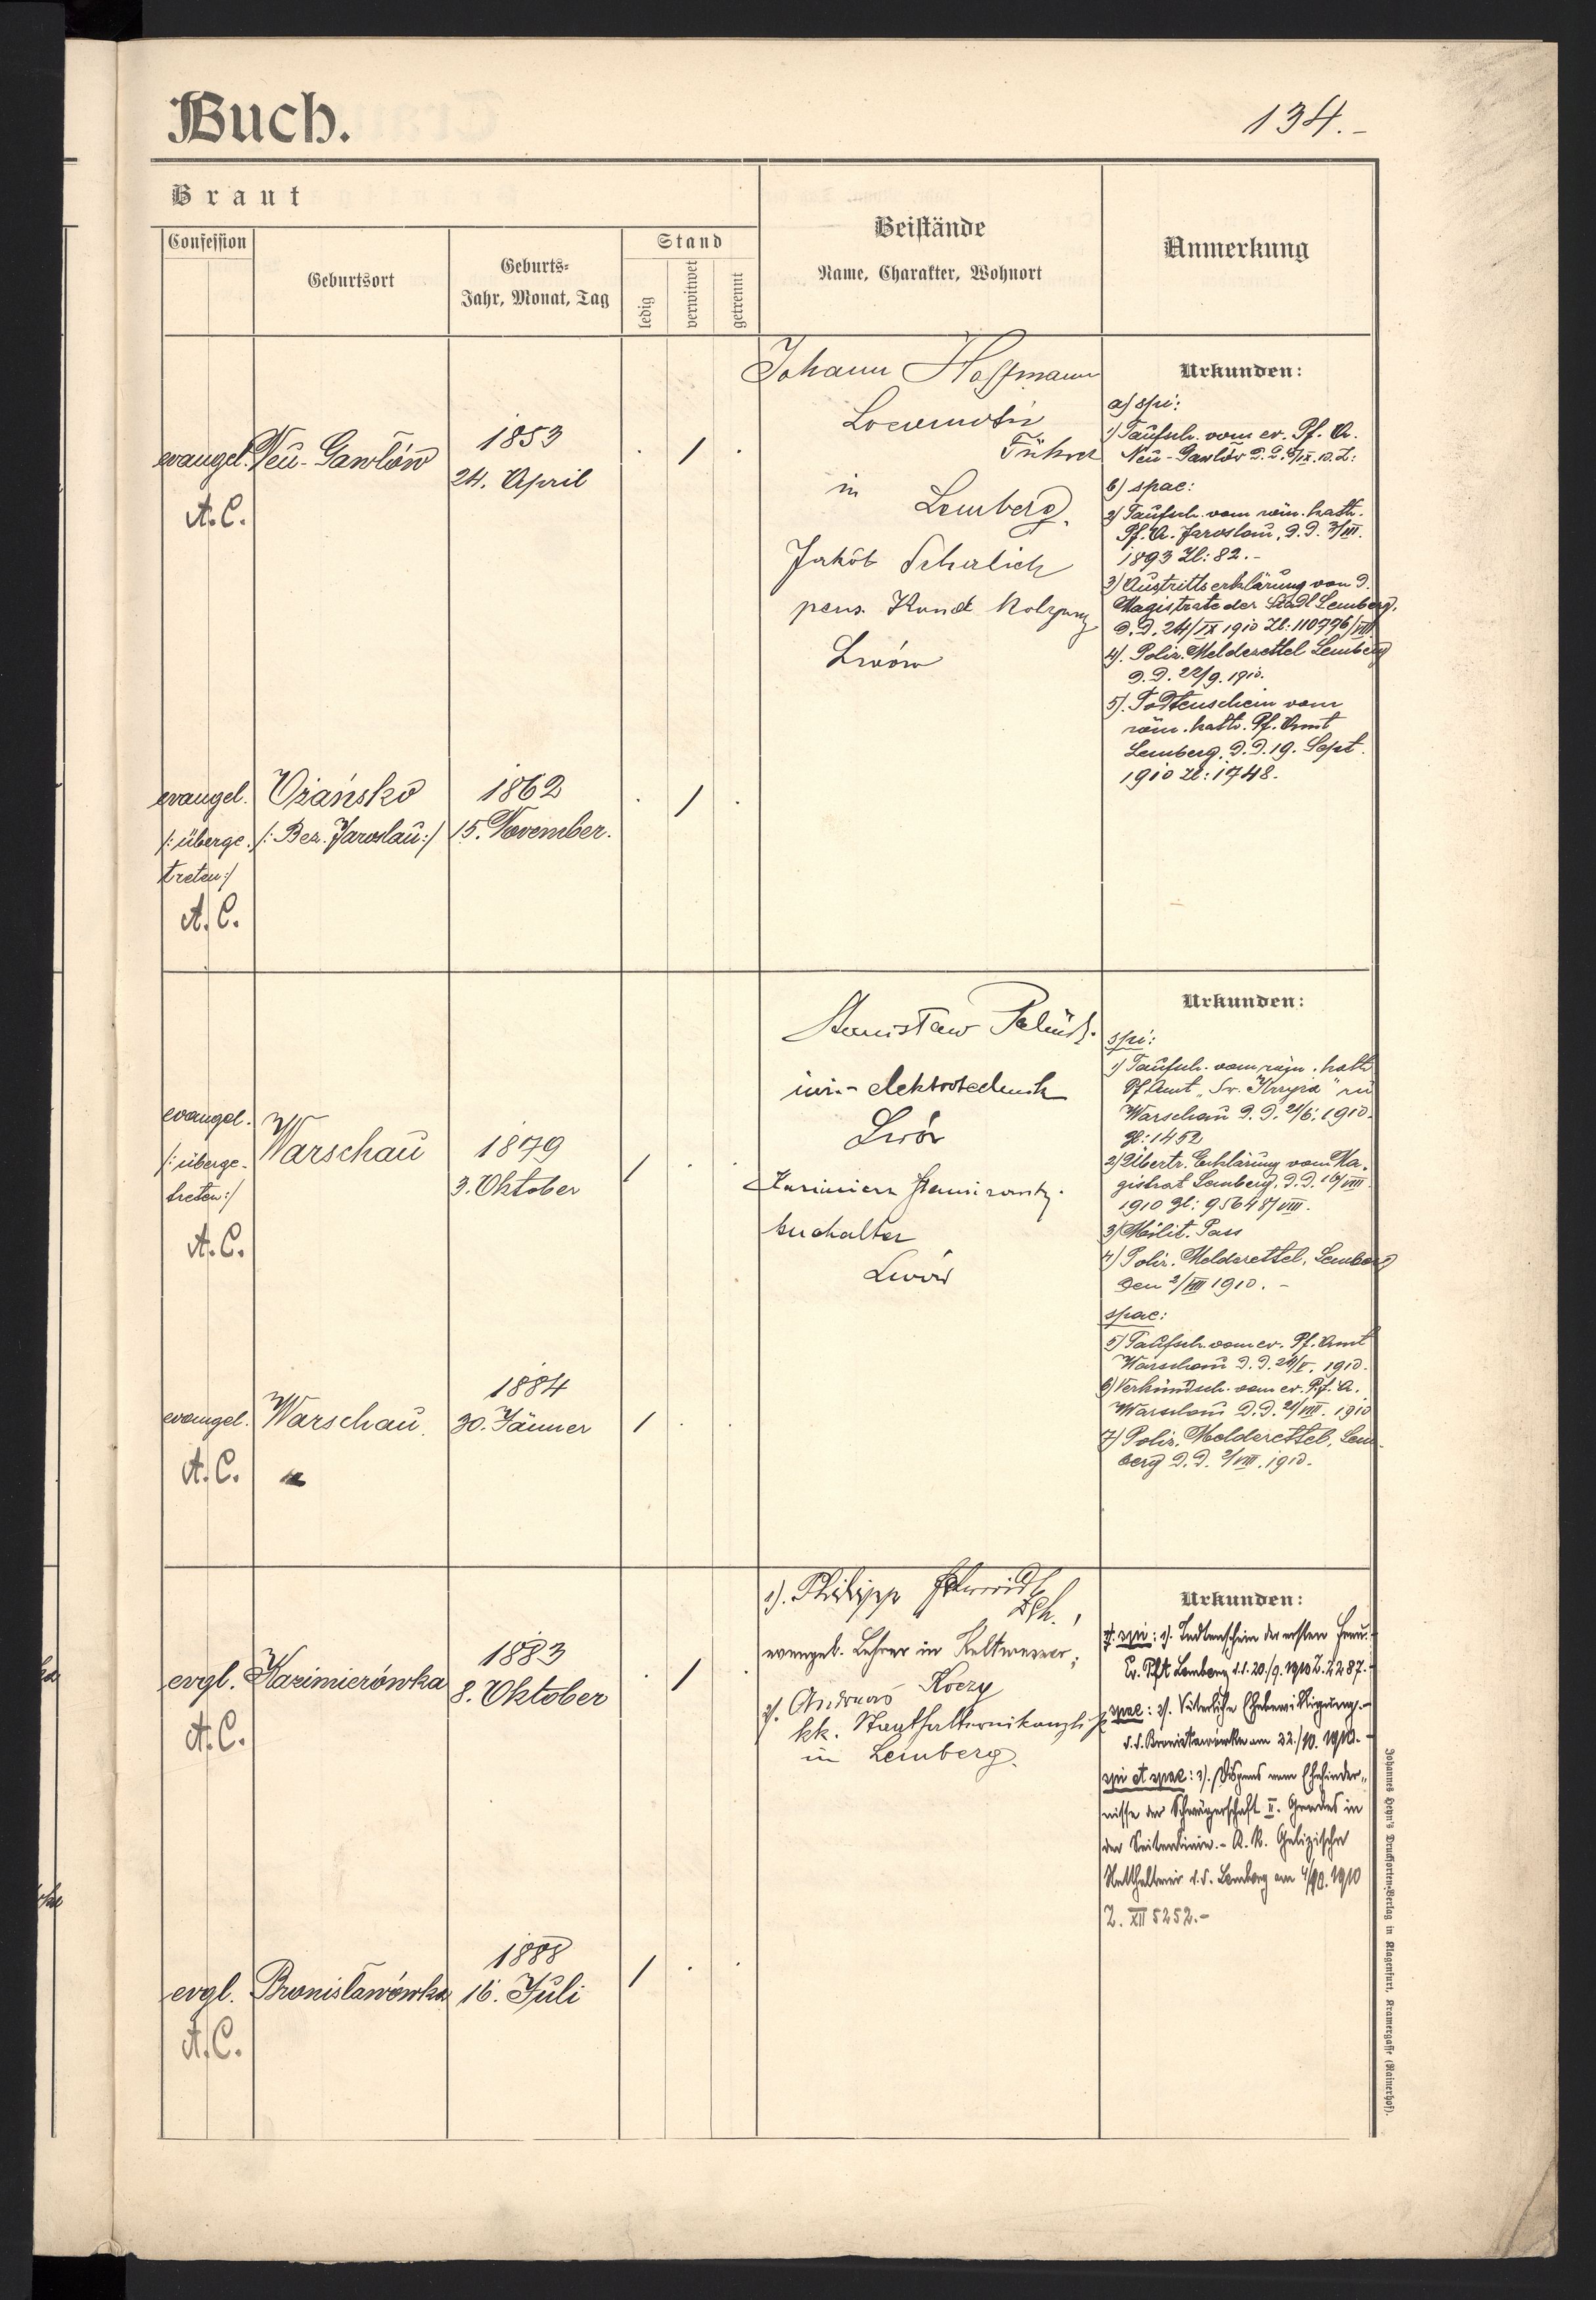 Buch.
134.-
Braut
Confession
Geburtsort
Geburts-
Jahr, Monat, Tag
Stand
ledig
verwitwet
getrennt
Beistände
Name, Charakter, Wohnort
Anmerkung
evangel.
A.C.
Neu-Gawłów
1853
24. April
. / .
Johann Hoffmann
Locomotiv
Führer
in Lemberg.
Jakób Schalich
pens. Kond.
Lwów
Urkunden:
a) spi:
1) Taufsch. vom ev. Pf. A.
Neu-Gawlów
b) spae:
2) Taufsch. vom röm. kath.
Pf. A. Jaroslau, d.d. 7/III.
1893 Zl: 82.-
3) Austrittserklärung von d.
Magistrate der Stadt Lemberg.
d.d. 24/IX 1910 Zl: 110796/VIII
4). Poliz. Meldezettel Lemberg
d.d. 22/9. 1910.
5). Todtenschein vom
röm. kath. Pf. Amt
Lemberg, d.d. 19. Sept.
1910 Zl: 1748.
evangel.
/: überge-
treten :/
A.C.
Ożańsko
/: Bez. Jaroslau :/
1862
15. November.
. / .
evangel.
/: überge-
treten :/
A.C.
Warschau
1879
3. Oktober
/ . .
Stanisław
Lwów
Kazimierz
buchalter
Lwów
Urkunden:
spi:
1) Taufsch. vom röm. kath
Pf. Amt „Św. Krzyża" zu
Warschau d.d. 21/6. 1910.
Zl: 1452
2) Übertr. Erklärung vom Ma-
gistrat Lemberg, d.d. 16/VIII
1910 Zl: 95648/VIII.
3) Milit. Pass
4) Poliz. Meldezettel, Lemberg
den 2/VIII 1910.-
spae:
5) Taufsch. vom ev. Pf. Amt
Warschau d.d. 24/V. 1910.
6) Verkündsch. vom ev. Pf. A.
Warschau d.d. 21/VIII. 1910
7) Poliz. Meldezettel, Lem-
berg d.d. 2/VIII. 1910.
evangel.
A.C.
Warschau.
1884
30. Jänner
/ . .
evgl.
A.C.
Kazimierówka
1883
8. Oktober
. / .
1). Philipp Schmidt,
evangel. Lehrer in
2). Andreas Koczy
kk. Statthaltereikanzlist
in Lemberg.
Urkunden:
spi: 1). Todtenschein der ersten Frau.-
Ev. Pft Lemberg d.d. 20./9. 1910 Z. 2287.-
spae: 2). Väterliche Ehebewilligung.-
d.d. Bronisławówka am 22./10. 1910.-
spi et spae: 3). Dispens vom Ehehinder-
nisse der Schwägerschaft II. Grades in
der Seitenlinie.- K. K. Galizische
Statthalterei d.d. Lemberg am 4/10. 1910
Z. XII 5252.-
evgl.
A.C.
Bronisławówka
1888
16. Juli
/ . .
Johannes Heyn's Drucksorten-Verlag in Klagenfurt, Kramergasse (Rainerhof).